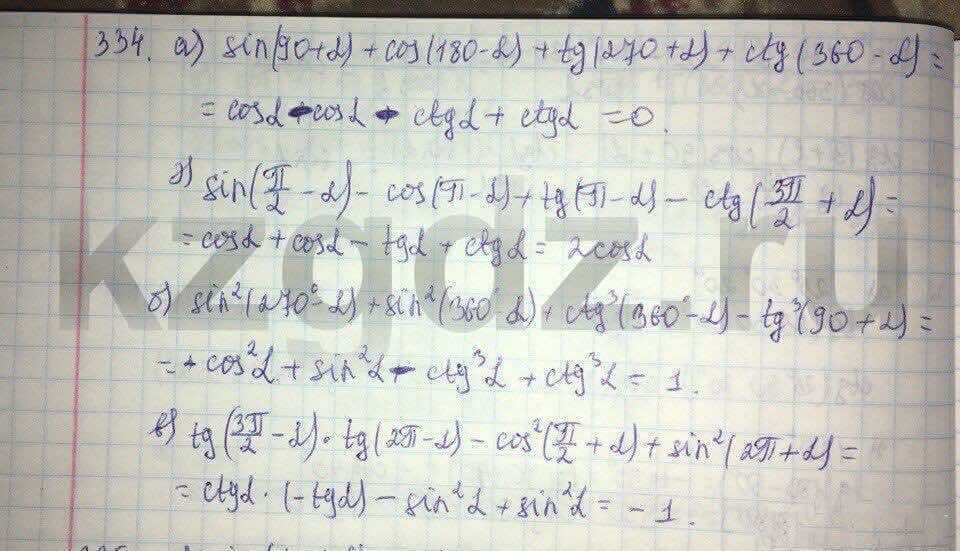 334. а) sin(90+α) + cos(180-α) + tg(270+α) + ctg(360-α) =
= cosα - cosα - ctgα + ctgα = 0.
г) sin(π/2 - α) - cos(π-α) + tg(π-α) - ctg(3π/2 + α) =
= cosα + cosα - tgα + ctgα = 2cosα
б) sin²(270°-α) + sin²(360°-α) + ctg³(360°-α) - tg³(90+α) =
= + cos²α + sin²α - ctg³α + ctg³α = 1.
в) tg(3π/2 - α) · tg(2π-α) - cos²(π/2 + α) + sin²(2π+α) =
= ctgα · (-tgα) - sin²α + sin²α = -1.
kzgdz.ru